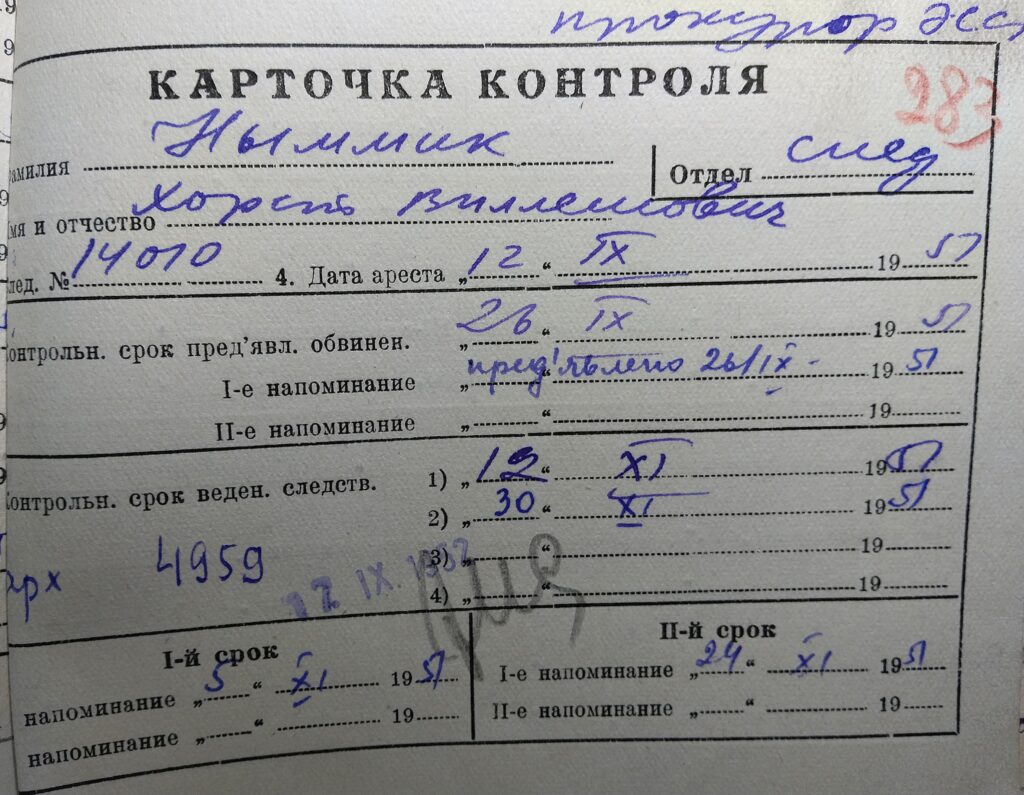 прокурор ЭСС
283
КАРТОЧКА КОНТРОЛЯ
амилия Ныммик
Отдел след
мя и отчество Хорст Виллемович
лед. № 14010 4. Дата ареста „12“ IX 1951
онтрольн. срок пред'явл. обвинен. „26“ IX 1951
I-е напоминание „пред'явлено 26/IX - 1951
II-е напоминание „ “ 19
онтрольн. срок веден. следств. 1) „12“ XI 1951
2) „30“ XI 1951
3) „ “ 19
4) „ “ 19
арх 4959
IX. 1952
I-й срок
напоминание „5“ XI 1951
напоминание „ “ 19
II-й срок
I-е напоминание „24“ XI 1951
II-е напоминание „ “ 19